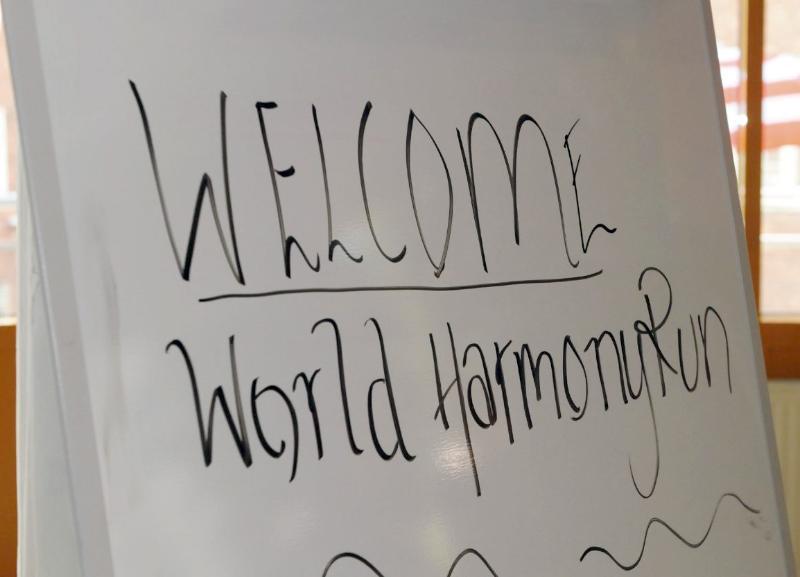 WELCOME
World Harmony Run